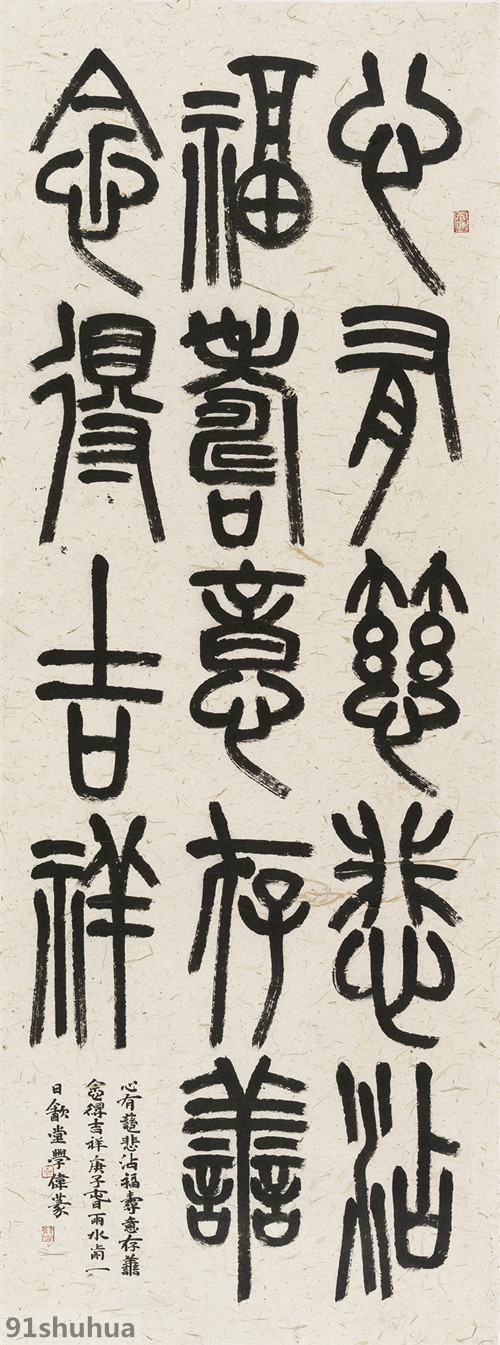 心有慈悲沾
福壽意存譱
念得吉祥
心有慈悲沾福壽意存譱
念得吉祥庚子春雨水前一
日歙堂學偉篆
91shuhua